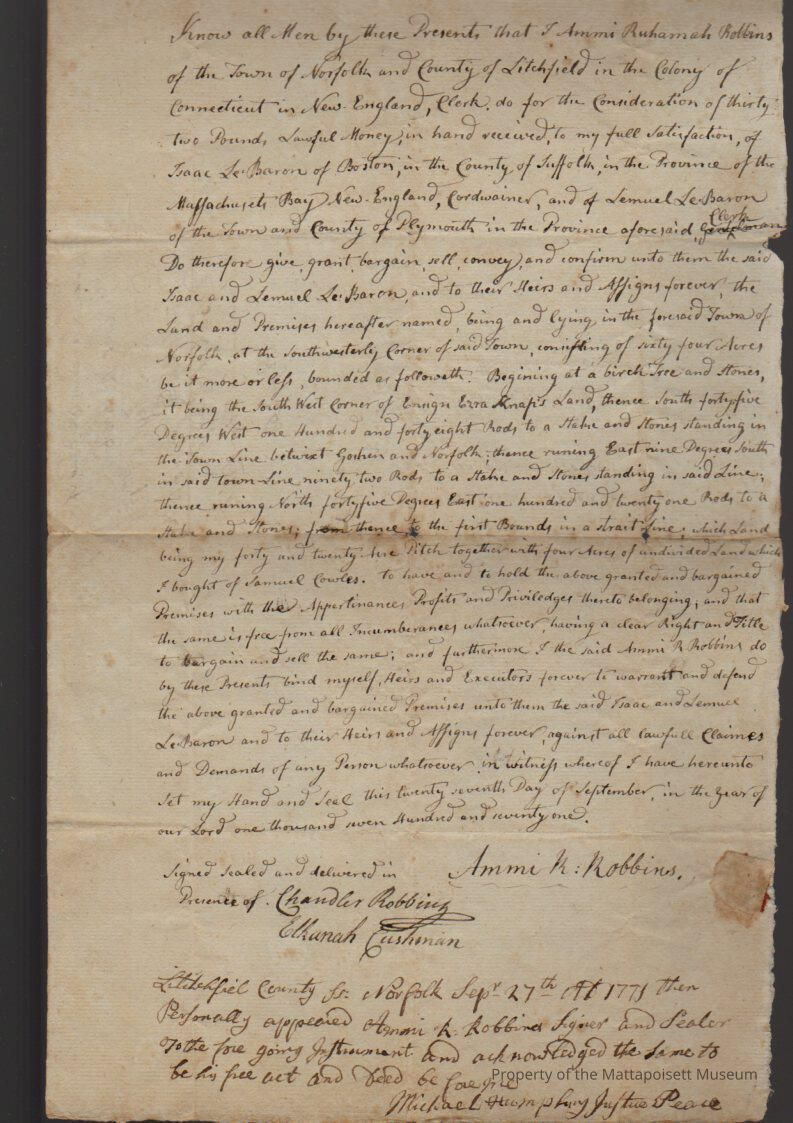 Know all Men by these Presents that I Ammi Ruhamah Robbins
of the Town of Norfolk and County of Litchfield in the Colony of
Connecticut in New-England, Clerk, do for the Consideration of thirty
two Pounds Lawful Money, in hand received, to my full Satisfaction, of
Isaac LeBaron of Boston, in the County of Suffolk, in the Province of the
Massachusets Bay New-England, Cordwainer, and of Lemuel LeBaron
Clerk
of the Town and County of Plymouth in the Province aforesaid, Gentleman
Do therefore give, grant, bargain, sell, convey, and confirm unto them the said
Isaac and Lemuel LeBaron, and to their Heirs and Assigns forever, the
Land and Premises hereafter named, being and lying, in the foresaid Town of
Norfolk, at the Southwesterly Corner of said Town, consisting of sixty four Acres
be it more or less, bounded as followeth. Begining at a birch Tree and Stones,
it being the South West Corner of Ensign Ezra Knap's Land, thence South fortyfive
Degrees West one Hundred and forty eight Rods to a Stake and Stones standing in
the Town Line betwixt Goshen and Norfolk; thence runing East nine Degrees South
in said town Line ninety two Rods to a Stake and Stones standing in said Line;
thence runing North fortyfive Degrees East one hundred and twenty one Rods to a
Stake and Stones; from thence to the first Bounds in a strait Line, which Land
being my forty and twenty Acre Pitch together with four Acres of undivided Land which
I bought of Samuel Cowles. to have and to hold the above granted and bargained
Premises with the Appertinances Profits and Priviledges thereto belonging; and that
the same is free from all Incumberances whatsoever, having a clear Right and Title
to bargain and sell the same; and furthermore I the said Ammi R Robbins do
by these Presents bind myself, Heirs and Executors forever to warrant and defend
the above granted and bargained Premises unto them the said Isaac and Lemuel
LeBaron and to their Heirs and Assigns forever, against all lawfull Claimes
and Demands of any Person whatsoever. in witness whereof I have hereunto
set my Hand and Seal this twenty seventh Day of September, in the year of
our Lord one thousand seven Hundred and seventy one.
Signed sealed and delivered in Ammi R: Robbins.
Presence of. Chandler Robbins
Elkanah Cushman
Litchfiel County Ss. Norfolk Sepr 27th AD 1771 then
Personally appeared Ammi R. Robbins Signer and Sealer
To the fore going Instrument and acknowledged the same to
be his free act and Deed be fore me
Michael Humphrey Justice Peace
Property of the Mattapoisett Museum